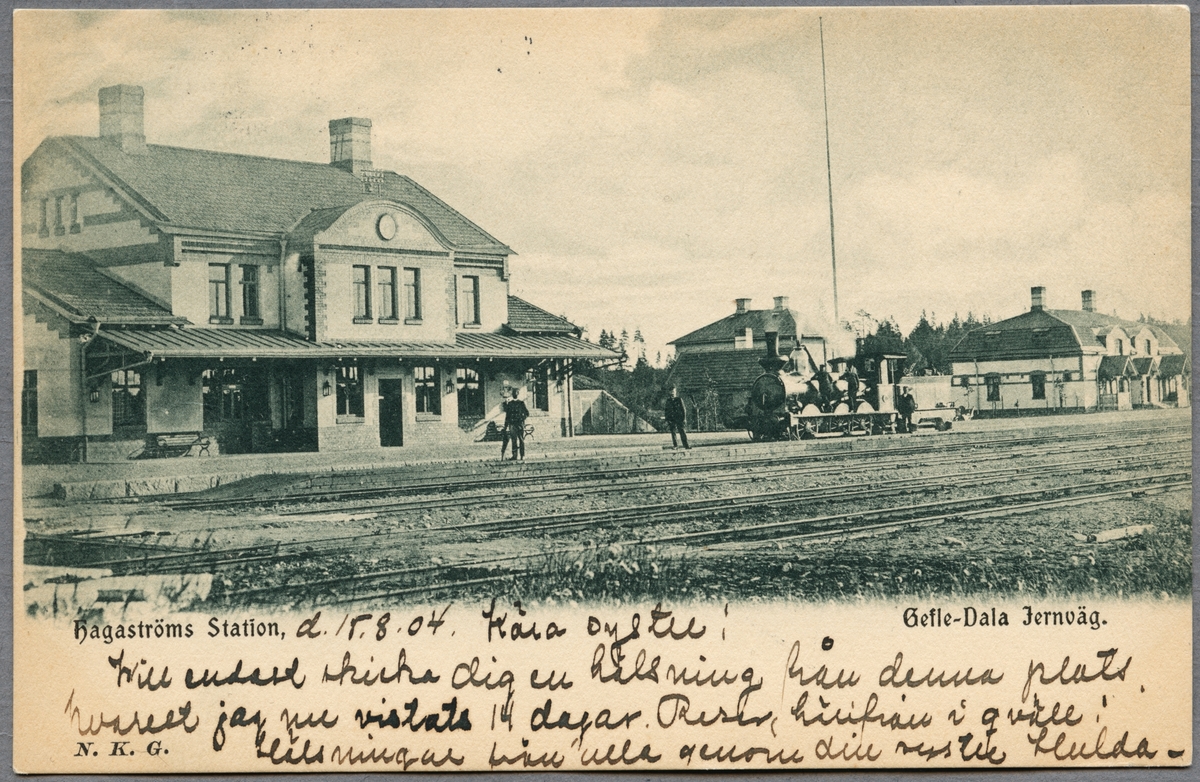 Hagaströms Station, d. 15.8.04. Kära syster! Gefle-Dala Jernväg.
Vill endast skicka dig en hälsning från denna plats,
hvarest jag nu vistats 14 dagar. Reser härifrån i qväll!
N. K. G. Hälsningar från alla genom din syster Hulda-